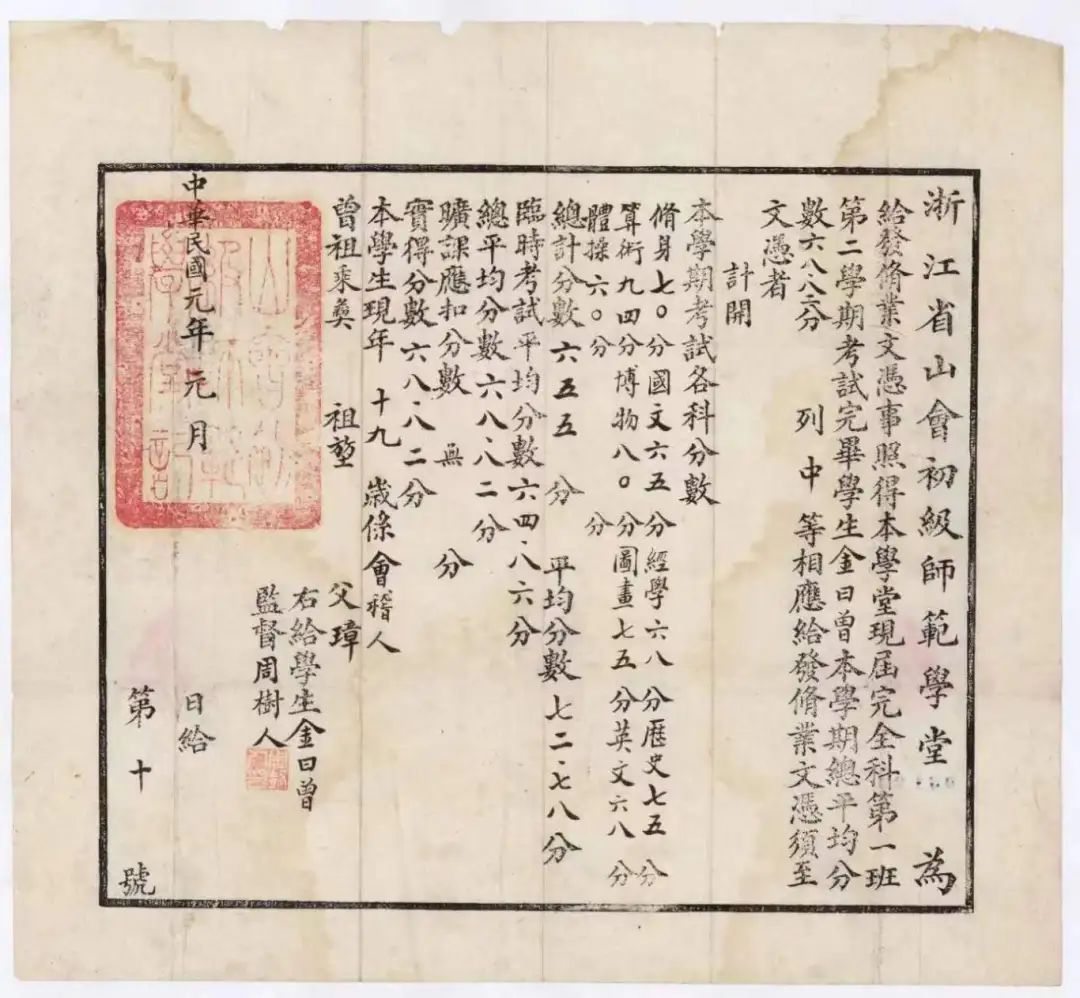 浙江省山會初級師範學堂 為
給發脩業文憑事照得本學堂現屆完全科第一班
第二學期考試完畢學生金曰曾本學期總平均分
數六八·八二分 列中等相應給發脩業文憑須至
文憑者
計開
本學期考試各科分數
脩身七〇分國文六五分經學六八分歷史七五分
算術九四分博物八〇分圖畫七五分英文六八分
體操六〇分
總計分數六五五分 平均分數七二·七八分
臨時考試平均分數六四·八六分
總平均分數六八·八二分
曠課應扣分數 無 分
實得分數六八·八二分
本學生現年十九歲係會稽人
曾祖 祖堃 父璋
右給學生金曰曾
監督周樹人
中華民國元年元月 日給
第十號